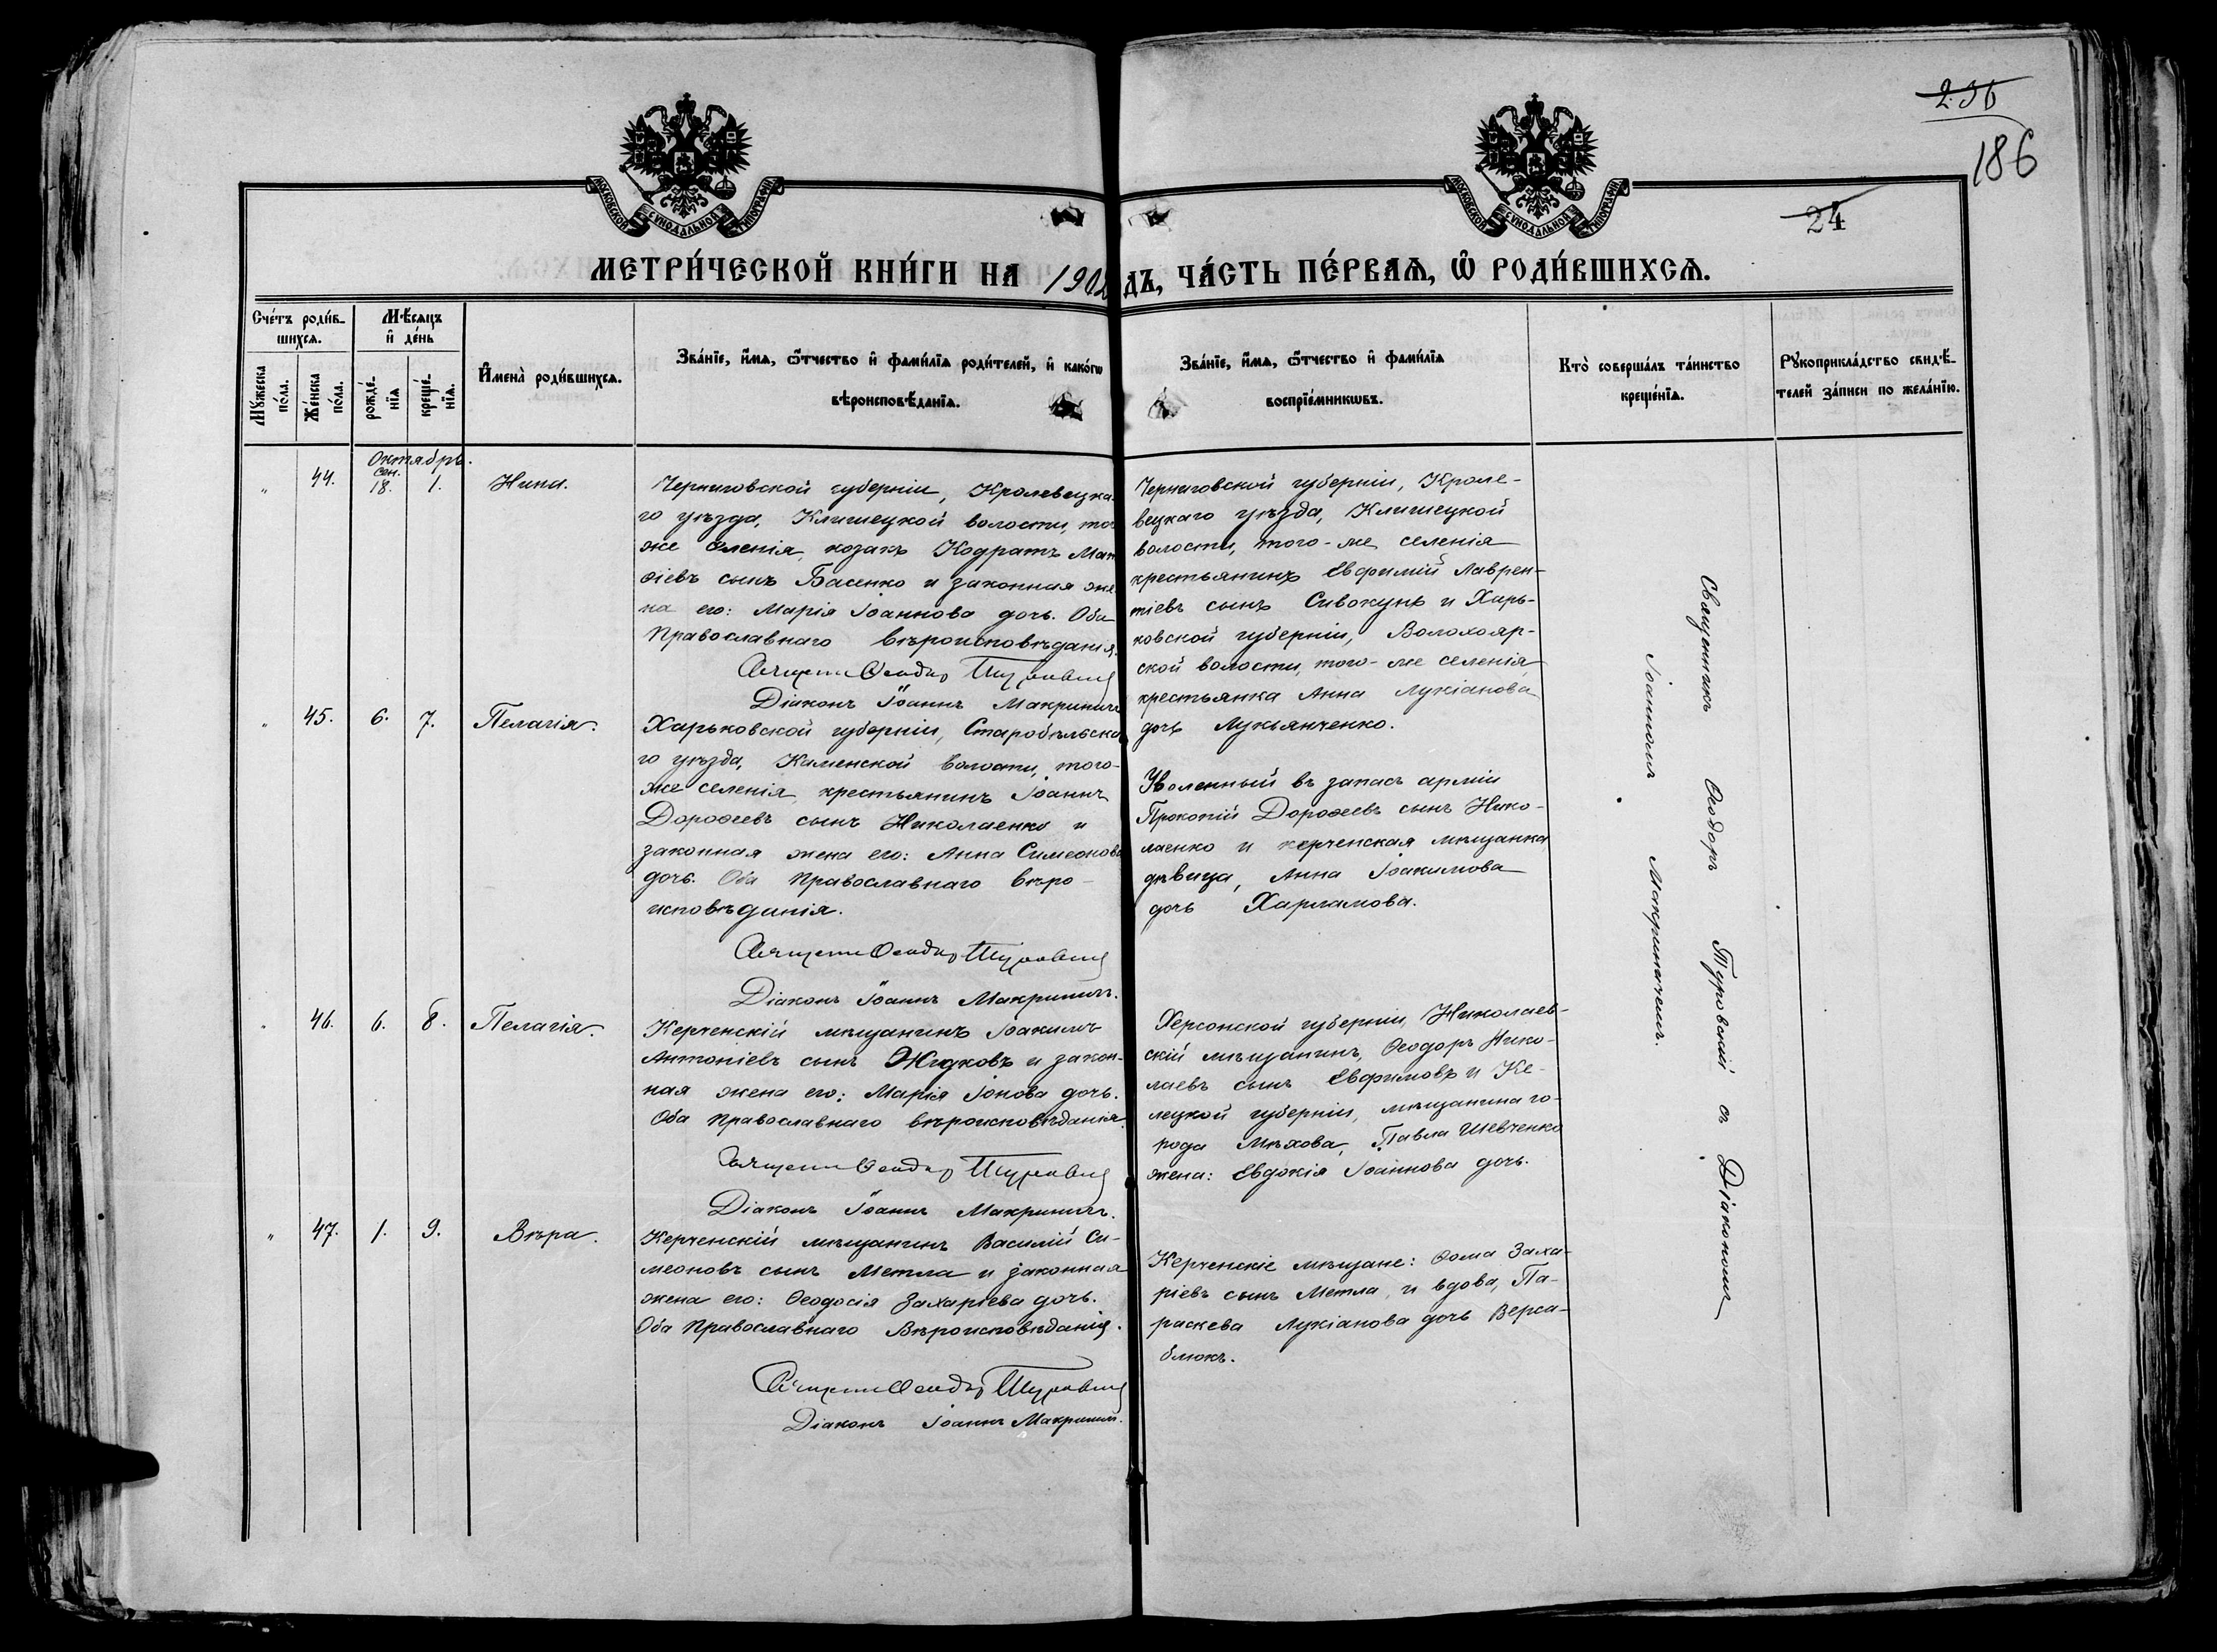 236
186
24
МОСКОВСКОЙ СѴНОДАЛЬНОЙ ТИПОГРАФІИ
МОСКОВСКОЙ СѴНОДАЛЬНОЙ ТИПОГРАФІИ
МЕТРИ́ЧЕСКОЙ КНИ́ГИ НА 1902 ДЪ, ЧА́СТЬ ПЕ́РВАѦ, Ѽ РОДИ́ВШИХСѦ.
Сче́тъ роди́в-
шихсѧ.
Мꙋ́жеска по́ла.
Же́нска по́ла.
Мѣ́сѧцъ
и҆ де́нь
рожде́-
нїѧ
креще́-
нїѧ.
И҆мена̀ роди́вшихсѧ.
Зва́нїе, и҆́мѧ, ѻ҆́тчество и҆ фами́лїѧ роди́телей, и҆ како́гѡ
вѣроисповѣ́данїѧ.
Зва́нїе, и҆́мѧ, ѻ҆́тчество и҆ фами́лїѧ
воспрїе́мникѡвъ.
Кто̀ соверша́лъ та́инство
креще́нїѧ.
Рꙋкоприкла́дство свидѣ́-
телей за́писи по жела́нїю.
Октябрь.
" 44. сен. 18. 1. Нина.
Черниговской губерніи, Кролевецка-
го уѣзда, Клишецкой волости, того
же селенія, козакъ Кодратъ Мат
ѳіевъ сынъ Басенко и законная же
на его: Марія Іоаннова дочь. Оба
Православнаго вѣроисповѣданія.
Священ Ѳеодор Туровский
Діаконъ Іоаннъ Макринич
Черниговской губерніи, Кроле-
вецкаго уѣзда, Клишецкой
волости, того-же селенія
крестьянинъ Евфимій Лаврен-
тіевъ сынъ Сивокунь и Харь-
ковской губерніи, Волохояр-
ской волости, того-же селенія,
крестьянка Анна Лукіанова
дочь Лукьянченко.
" 45. 6. 7. Пелагія.
Харьковской губерніи, Старобѣльска
го уѣзда, Каменской волости, того-
же селенія, крестьянинъ Іоаннъ
Дороѳеевъ сынъ Николаенко и
законная жена его: Анна Симеонова
дочь. Оба Православнаго вѣро-
исповѣданія.
Священ Ѳеодор Туровский
Діаконъ Іоаннъ Макринич.
Уволенный въ запасъ арміи
Прокопій Дороѳеевъ сынъ Нико-
лаенко и керченская мѣщанка
дѣвица, Анна Іоакимова
дочь Харламова.
" 46. 6. 8. Пелагія.
Керченскій мѣщанинъ Іоакимъ
Антоніевъ сынъ Жидковъ и закон-
ная жена его: Марія Іонова дочь.
Оба Православнаго вѣроисповѣданія.
Священ Ѳеодор Туровский
Діаконъ Іоаннъ Макринич.
Херсонской губерніи, Николаев-
скій мѣщанинъ, Ѳеодоръ Нико-
лаевъ сынъ Евфимовъ и Ке-
лецкой губерніи, мѣщанина го-
рода Мѣхова, Павла Шевченко
жена: Евдокія Іоаннова дочь.
" 47. 1. 9. Вѣра.
Керченскій мѣщанинъ Василій Си-
меоновъ сынъ Метла и законная
жена его: Ѳеодосія Захаріева дочь.
Оба Православнаго Вѣроисповѣданія.
Священ Ѳеодор Туровский
Діаконъ Іоаннъ Макринич.
Керченскіе мѣщане: Ѳома Заха-
ріевъ сынъ Метла, и вдова, Па-
раскева Лукіанова дочь Верса-
блюкъ.
Священникъ Ѳеодоръ Туровскій съ Діакономъ
Іоанномъ Макриничемъ.